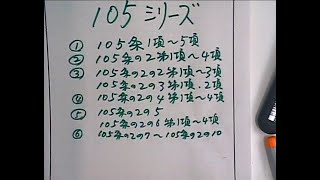 105シリーズ
① 105条1項〜5項
② 105条の2第1項〜4項
③ 105条の2の2第1項〜3項
105条の2の3第1項.2項
④ 105条の2の4第1項〜4項
⑤ 105条の2の5
105条の2の6第1項〜4項
⑥ 105条の2の7〜105条の2の10